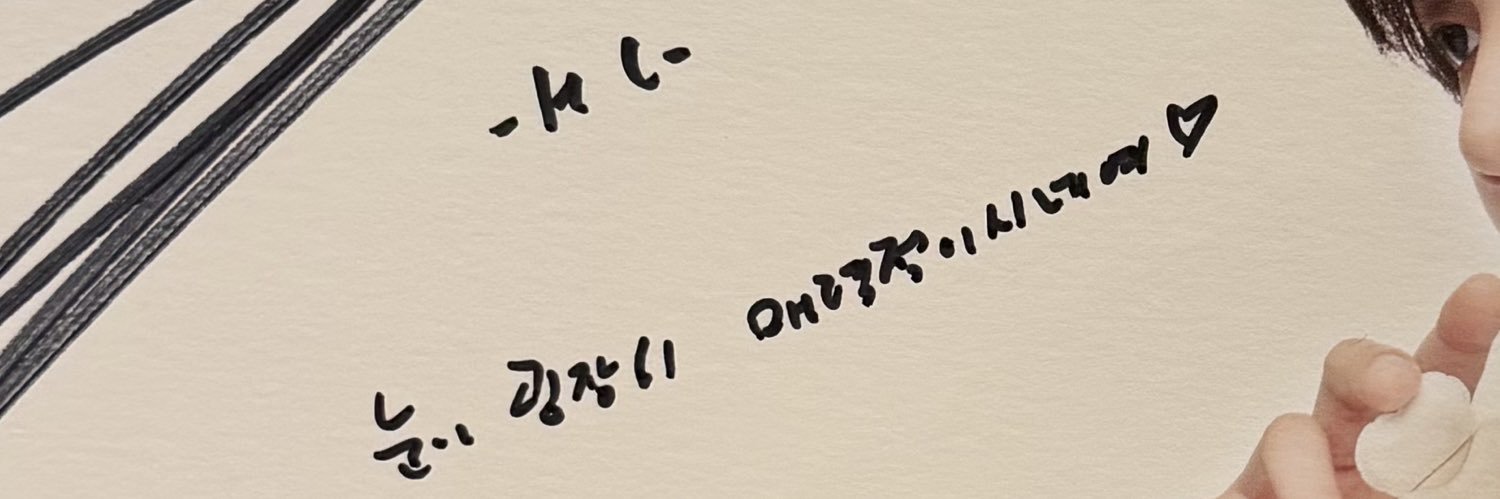 눈이 굉장히 매력적이시네여♡